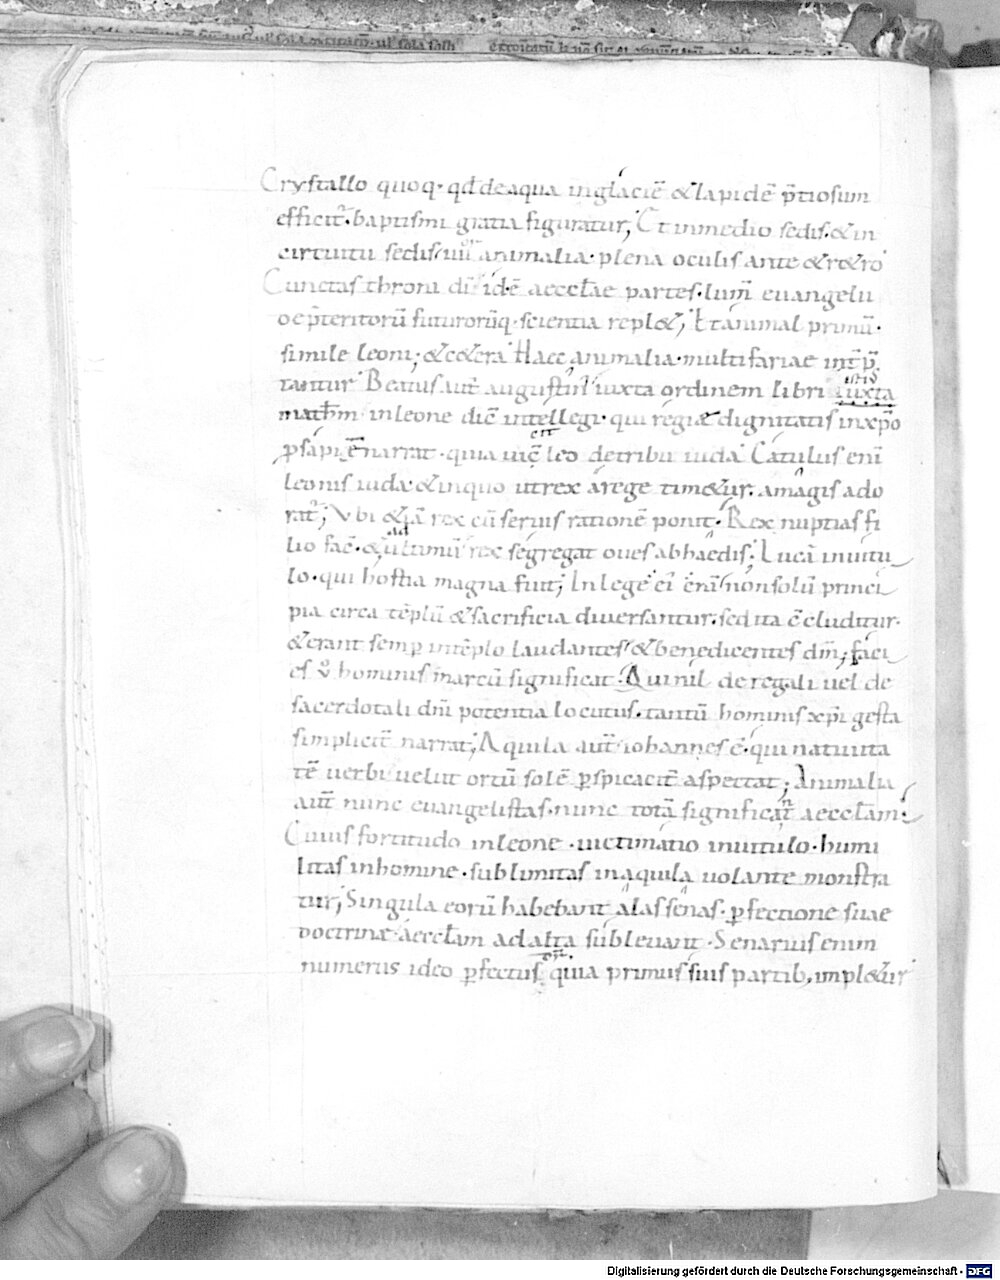 Crystallo quoq· qđ de aqua in glaciē & lapidē p̄tiosum
efficit᷑· baptismi gratia figuratur; Et in medio sedis· & in
circuitu sedis· iiii animalia· plena oculis ante & r&ro
Cunctas throni dī id·ē aeccl̄ae partes· lum̄ euangelii
p̄teritorū futurorūq· scientia repl&; Et animal primū·
simile leoni; & c&era Haec animalia· multifariae int̄p̄
tantur Beatus aut̄ augustin᷒ iuxta ordinem libri istius iuxta
math̄m in leone dic̄ intellegi· qui regiae dignitatis in xp̄o
ꝑsapiē narrat· quia uic̄ leo de tribu iuda Catulus enī
leonis iuda· & in quo ut rex a rege tim&ur· a magis ado
rat᷑; Vbi &iā rex cū seruis rationē ponit· Rex nuptias fi
lio fac̄· & ad ultimū rex segregat oues ab haedis; Lucā in uitu
lo· qui hostia magna fuit; In lege ei erā non solū princi
pia circa tēplū & sacrificia diuersantur· sed ita c̄cluditur·
& erant semp in tēplo laudantes & benedicentes dm̄; faci
es v̊ hominis marcū significat· Qui nil de regali uel de
sacerdotali dn̄i potentia locutus· tantū hominis xp̄i gesta
simplicit̄ narrat; Aquila aut̄ iohannes ē· qui natiuita
tē uerbi uelut ortū solē ꝑspicacit̄ aspectat; Animalia
aut̄ nunc euangelistas· nunc totā significant aeccl̄am·
Cuius fortitudo in leone· uictimatio in uitulo· humi
litas in homine· sublimitas in aquila uolante monstra
tur; Singula eorū habebant alas senas· ꝑfectione suae
doctrinae aeccl̄am ad alta subleuant· Senarius enim
numerus ideo ꝑfectus quia primus suis partib; impl&ur
Digitalisierung gefördert durch die Deutsche Forschungsgemeinschaft - DFG